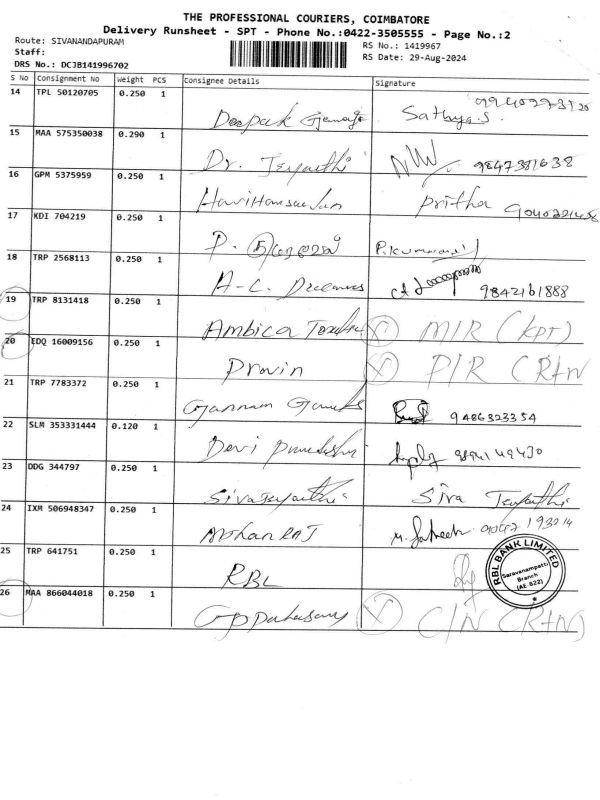 THE PROFESSIONAL COURIERS, COIMBATORE
Delivery Runsheet - SPT - Phone No.:0422-3505555 - Page No.:2
Route: SIVANANDAPURAM RS No.: 1419967
Staff: RS Date: 29-Aug-2024
DRS No.: DCJB141996702
S No Consignment No Weight PCS Consignee Details Signature
14 TPL 50120705 0.250 1 Deepak Sathya.S.
15 MAA 575350038 0.290 1 Dr. 9847381638
16 GPM 5375959 0.250 1 Pritha
17 KDI 704219 0.250 1 P.
18 TRP 2568113 0.250 1 A-C. 9842161888
19 TRP 8131418 0.250 1 Ambica X M/R (KPT)
20 EDQ 16009156 0.250 1 Pravin X P/R (R+N
21 TRP 7783372 0.250 1 9486323354
22 SLM 353331444 0.120 1 Devi
23 DDG 344797 0.250 1 Sivajeyanthi Siva Jeyanthi
24 IXM 506948347 0.250 1 Mohan RAJ
25 TRP 641751 0.250 1 RBL
RBL BANK LIMITED
Saravanampatti
Branch
(AE 822)
26 MAA 866044018 0.250 1 X C/N (R+N)